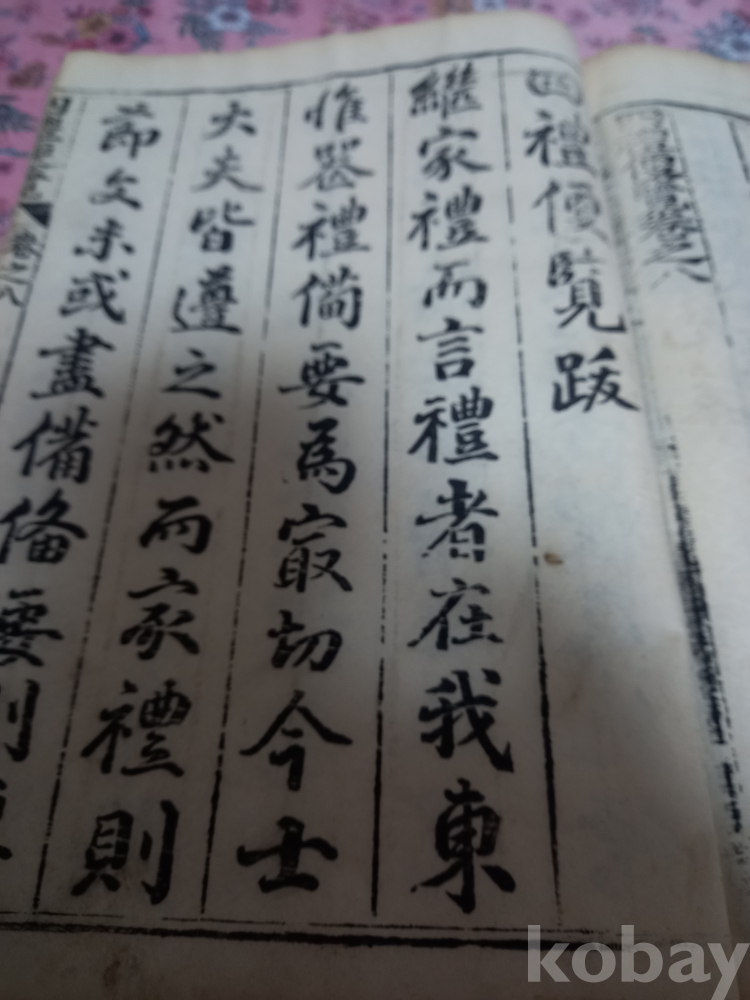 四禮便覽跋
繼家禮而言禮者在我東
惟喪禮備要為㝡切今士
大夫皆遵之然而家禮則
節文未或盡備備要則
卷之八
四禮便覽卷之八
kobay